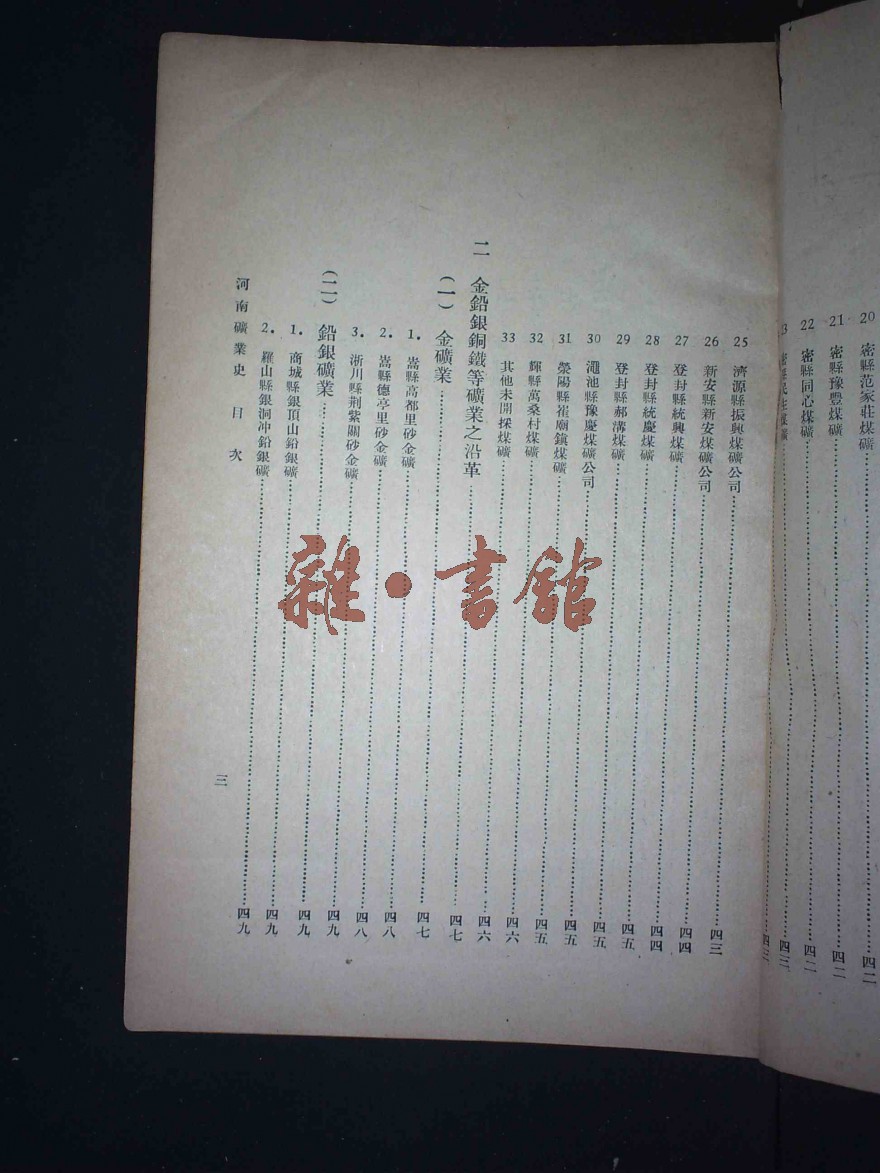 20 密縣范家莊煤礦……四二
21 密縣豫豐煤礦……四二
22 密縣同心煤礦……四三
25 濟源縣振興煤礦公司……四三
26 新安縣新安煤礦公司……四四
27 登封縣統興煤礦……四四
28 登封縣統慶煤礦……四五
29 登封縣郝溝煤礦……四五
30 澠池縣豫慶煤礦公司……四五
31 滎陽縣崔廟鎮煤礦……四五
32 輝縣萬桑村煤礦……四六
33 其他未開採煤礦……四六
二 金鉛銀銅鐵等礦業之沿革……四七
(一) 金礦業……四七
1. 嵩縣高都里砂金礦……四八
2. 嵩縣德亭里砂金礦……四八
3. 淅川縣荆紫關砂金礦……四九
(二) 鉛銀礦業……四九
1. 商城縣銀頂山鉛銀礦……四九
2. 羅山縣銀洞冲鉛銀礦……四九
河南礦業史 目次
三
雜·書館